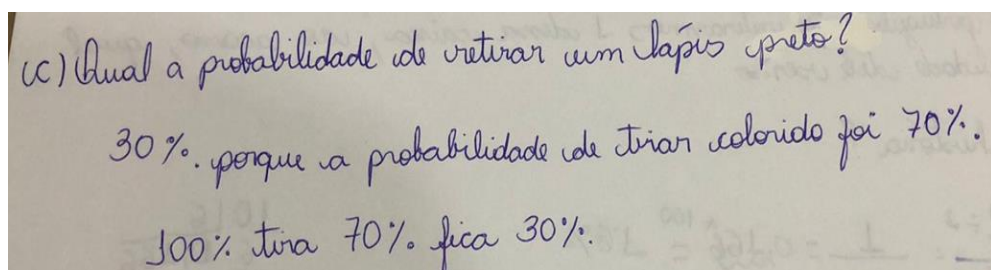 (c) Qual a probabilidade de retirar um lápis preto?
30%. porque a probabilidade de tirar colorido foi 70%.
100% tira 70% fica 30%.